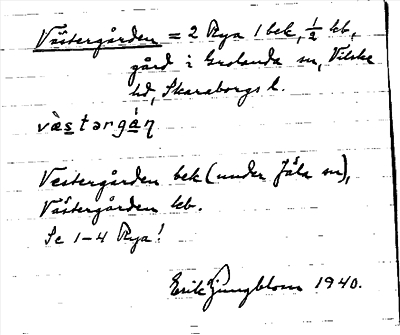 Västergården = 2 Rya 1 bek, ½ kb,
gård i Grolanda sn, Vilske
hd, Skaraborgs l.
vä̀stərgán
Vestergården bek (under Jäla sn),
Västergården kb.
Se 1–4 Rya!
Erik Ljungblom 1940.